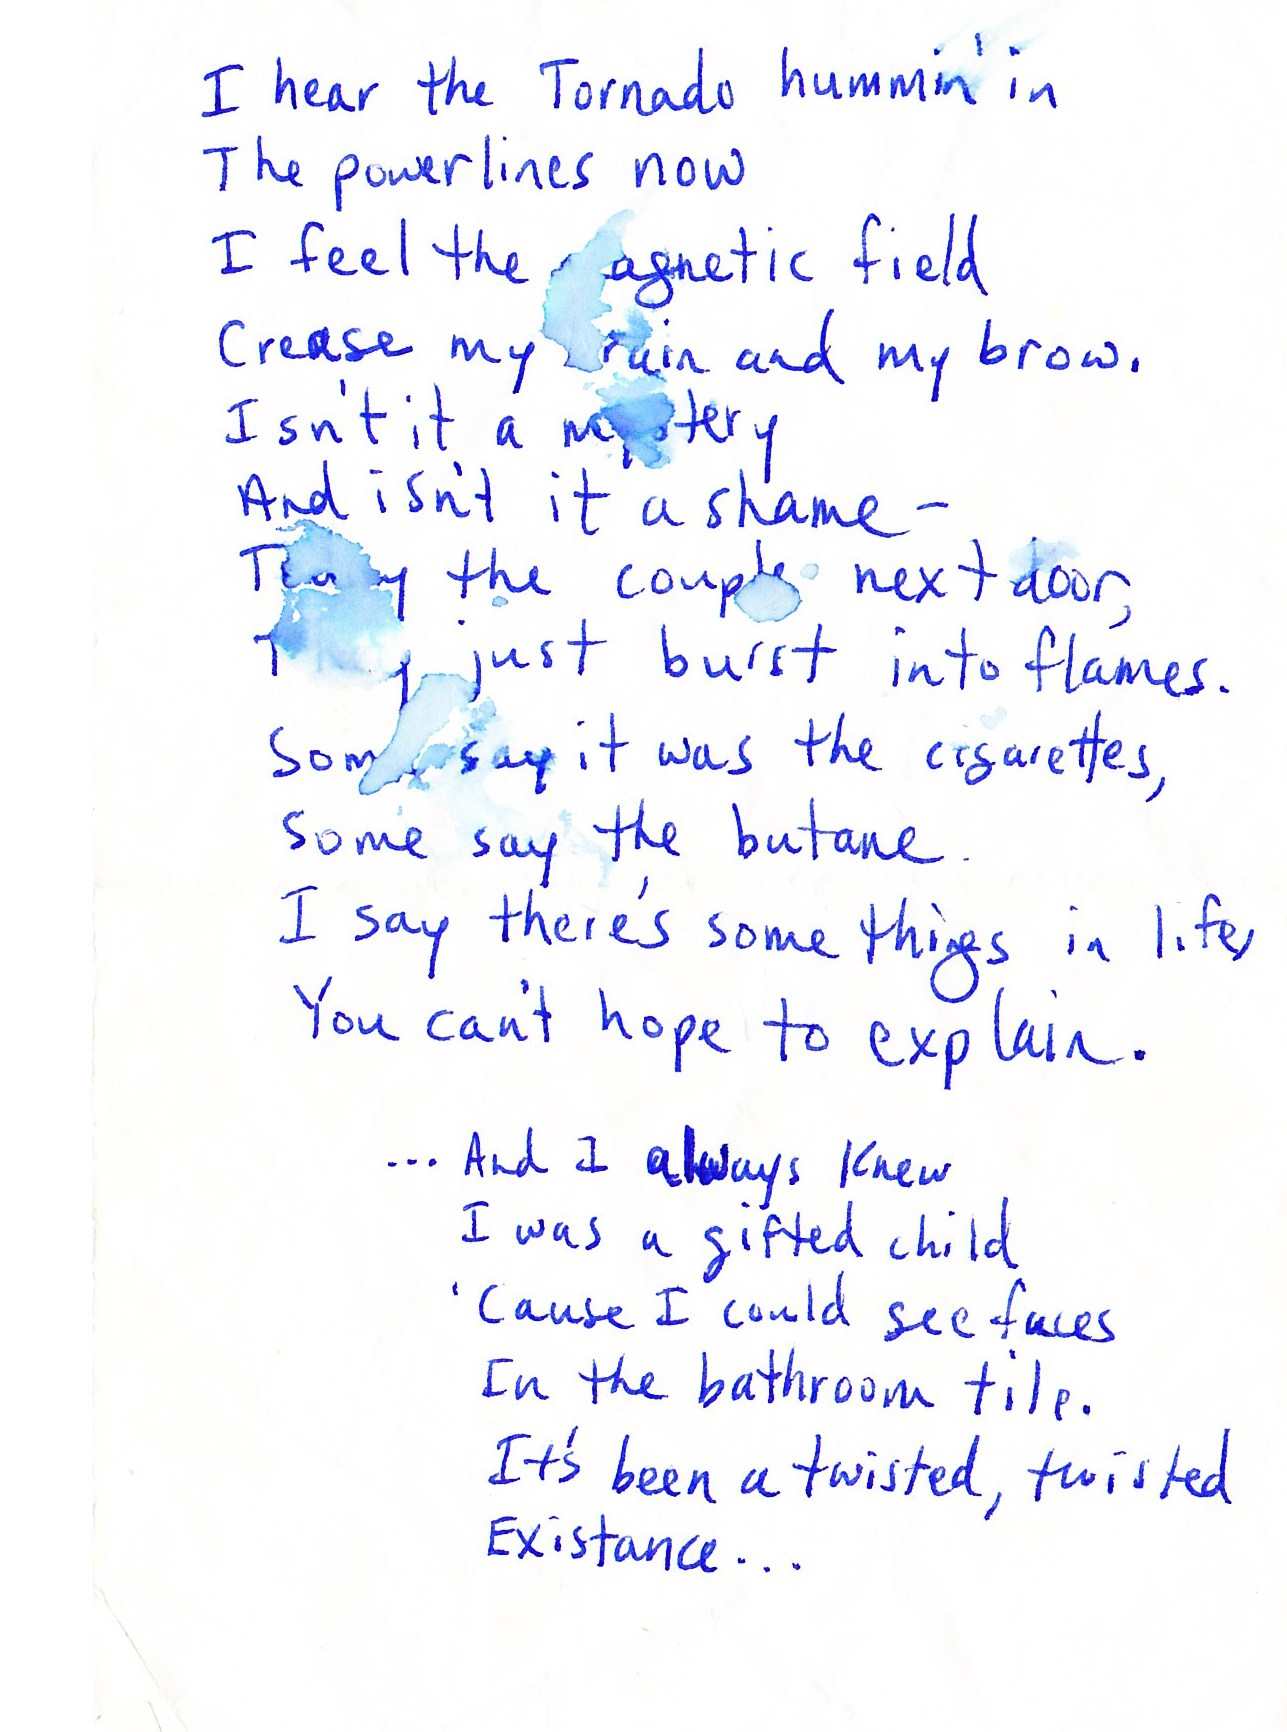 I hear the Tornado hummin' in
The powerlines now
I feel the magnetic field
Crease my brain and my brow.
Isn't it a mystery
And isn't it a shame -
the couple next door,
They just burst into flames.
Some say it was the cigarettes,
Some say the butane.
I say there's some things in life,
You can't hope to explain.
... And I always knew
I was a gifted child
'Cause I could see faces
In the bathroom tile.
It's been a twisted, twisted
Existance...